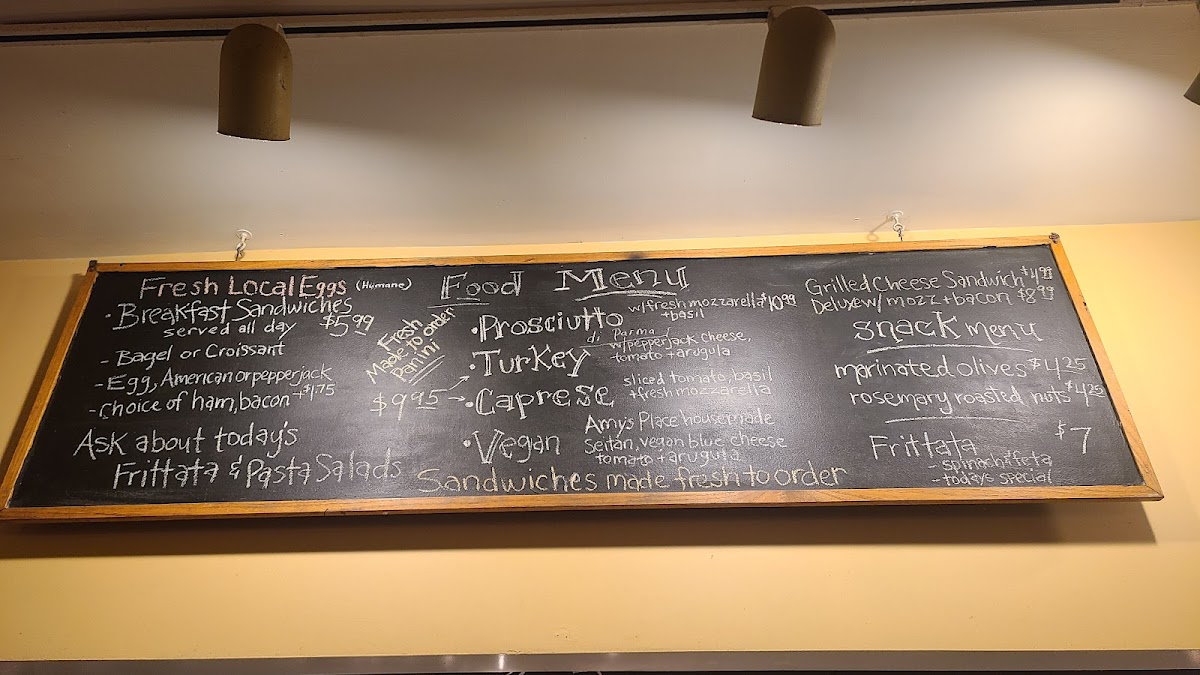 Food Menu
Fresh Local Eggs (Humane)
· Breakfast Sandwiches
served all day $5.99
- Bagel or Croissant
- Egg, American or pepperjack
- choice of ham, bacon +$1.75
Ask about today's
Frittata & Pasta Salads
Fresh
Made to order
Panini
$9.95
· Prosciutto
di Parma
w/fresh mozzarella $10.99
+ basil
· Turkey
w/pepperjack cheese,
tomato + arugula
· Caprese
sliced tomato, basil
+ fresh mozzarella
· Vegan
Amy's Place housemade
seitan, vegan blue cheese
tomato + arugula
Sandwiches made fresh to order
Grilled Cheese Sandwich $4.99
Deluxe w/ mozz + bacon $8.99
snack menu
marinated olives $4.25
rosemary roasted nuts $4.25
Frittata $7
- spinach + feta
- todays special